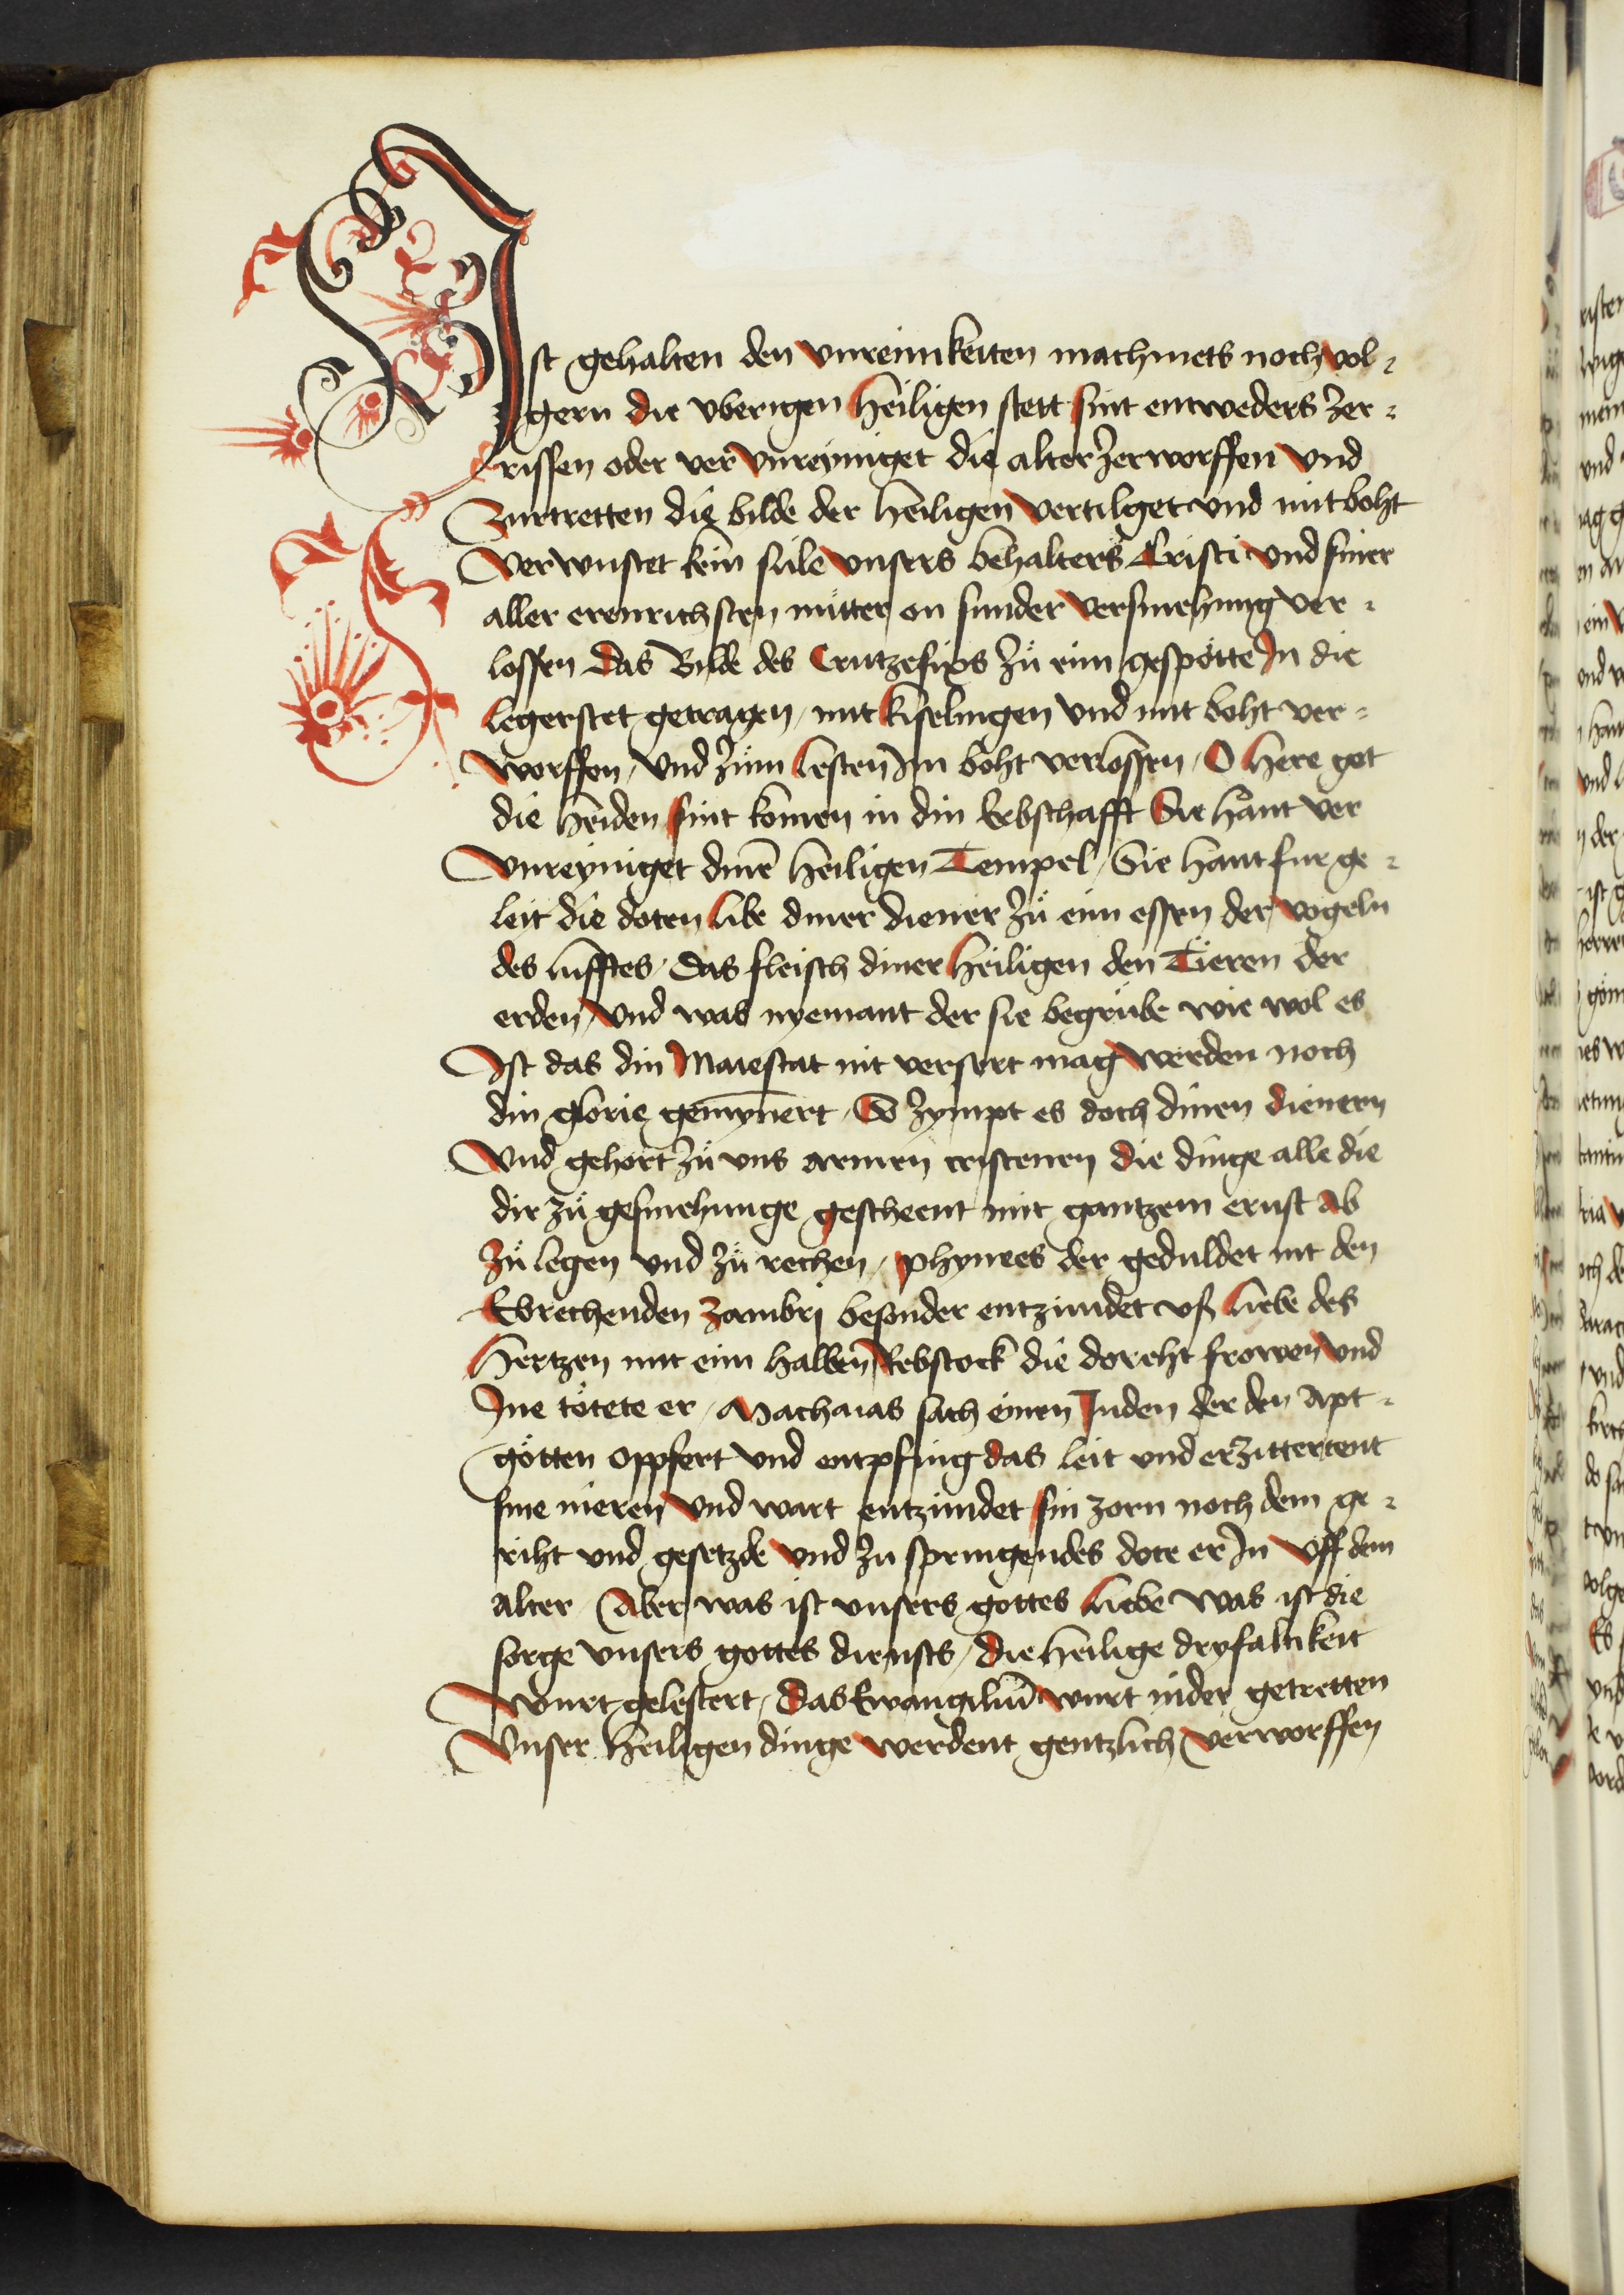 Ist gehalten den vnreinikeiten machmets noch vol¬
gern die vberigen heiligen stett sint entweders zer¬
rissen oder ver vnreyniget die alter zerworffen vnd
zurtretten die bilde der heiligen vertilget vnd mit boht
verwustet kein sule vnsers behalters Cristi vnd siner
aller erenrichsten mutter on sunder versmehung ver¬
lossen das Bilde des Crutzefixs zů eim gespötte In die
legerstet getragen / mit kiselingen vnd mit boht ver¬
worffen / vnd zům lesten Im boht verlossen / O here got
die heiden sint komen in din Erbschafft Sie hant ver
vnreyniget dinē heiligen Tempel / Sie hant fur ge¬
leit die doten libe diner diener zů eim essen der vogeln
des lufftes / das fleisch diner heiligen den Tieren der
erden / vnd was nyemant der sie begrübe wie wol es
Ist das din Maiestat nit versert mag werden noch
din glorie gemynert / So zympt es doch dinen dienern
Vnd gehort zů vns armen cristenen die dinge alle die
dir zů gesmehunge gescheent mit gantzem ernst ab
zů legen vnd zů rechen / phynees der geduldet nit den
Ebrechenden zambri besonder entzundet vß liebe des
hertzen mit eim halben Rebstock die doreht frowen vnd
Ine tötete er / Machaias sach einen Juden der den apt¬
götten oppfert vnd entpfing das leit vnd erzittertent
sine nieren vnd wart entzundet sin zorn noch dem ge¬
riht vnd gesetzde vnd zu springendes dote er In vff dem
alter / Aber was ist vnsers gottes liebe was ist die
sorge vnsers gottes diensts / die heilige dryfaltikeit
wurt gelestert / das Ewangeliū wurt nider getretten
Vnser heiligen dinge werdent gentzlich verworffen